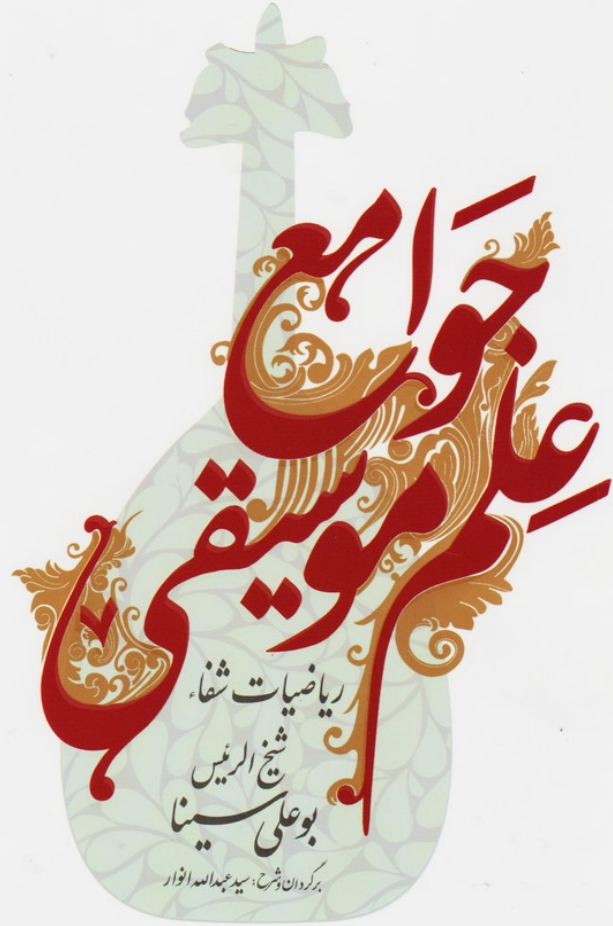 جوامع
علم موسیقی
ریاضیات شفاء
شیخ الرئیس
بوعلی سینا
برگردان و شرح: سید عبدالله انوار